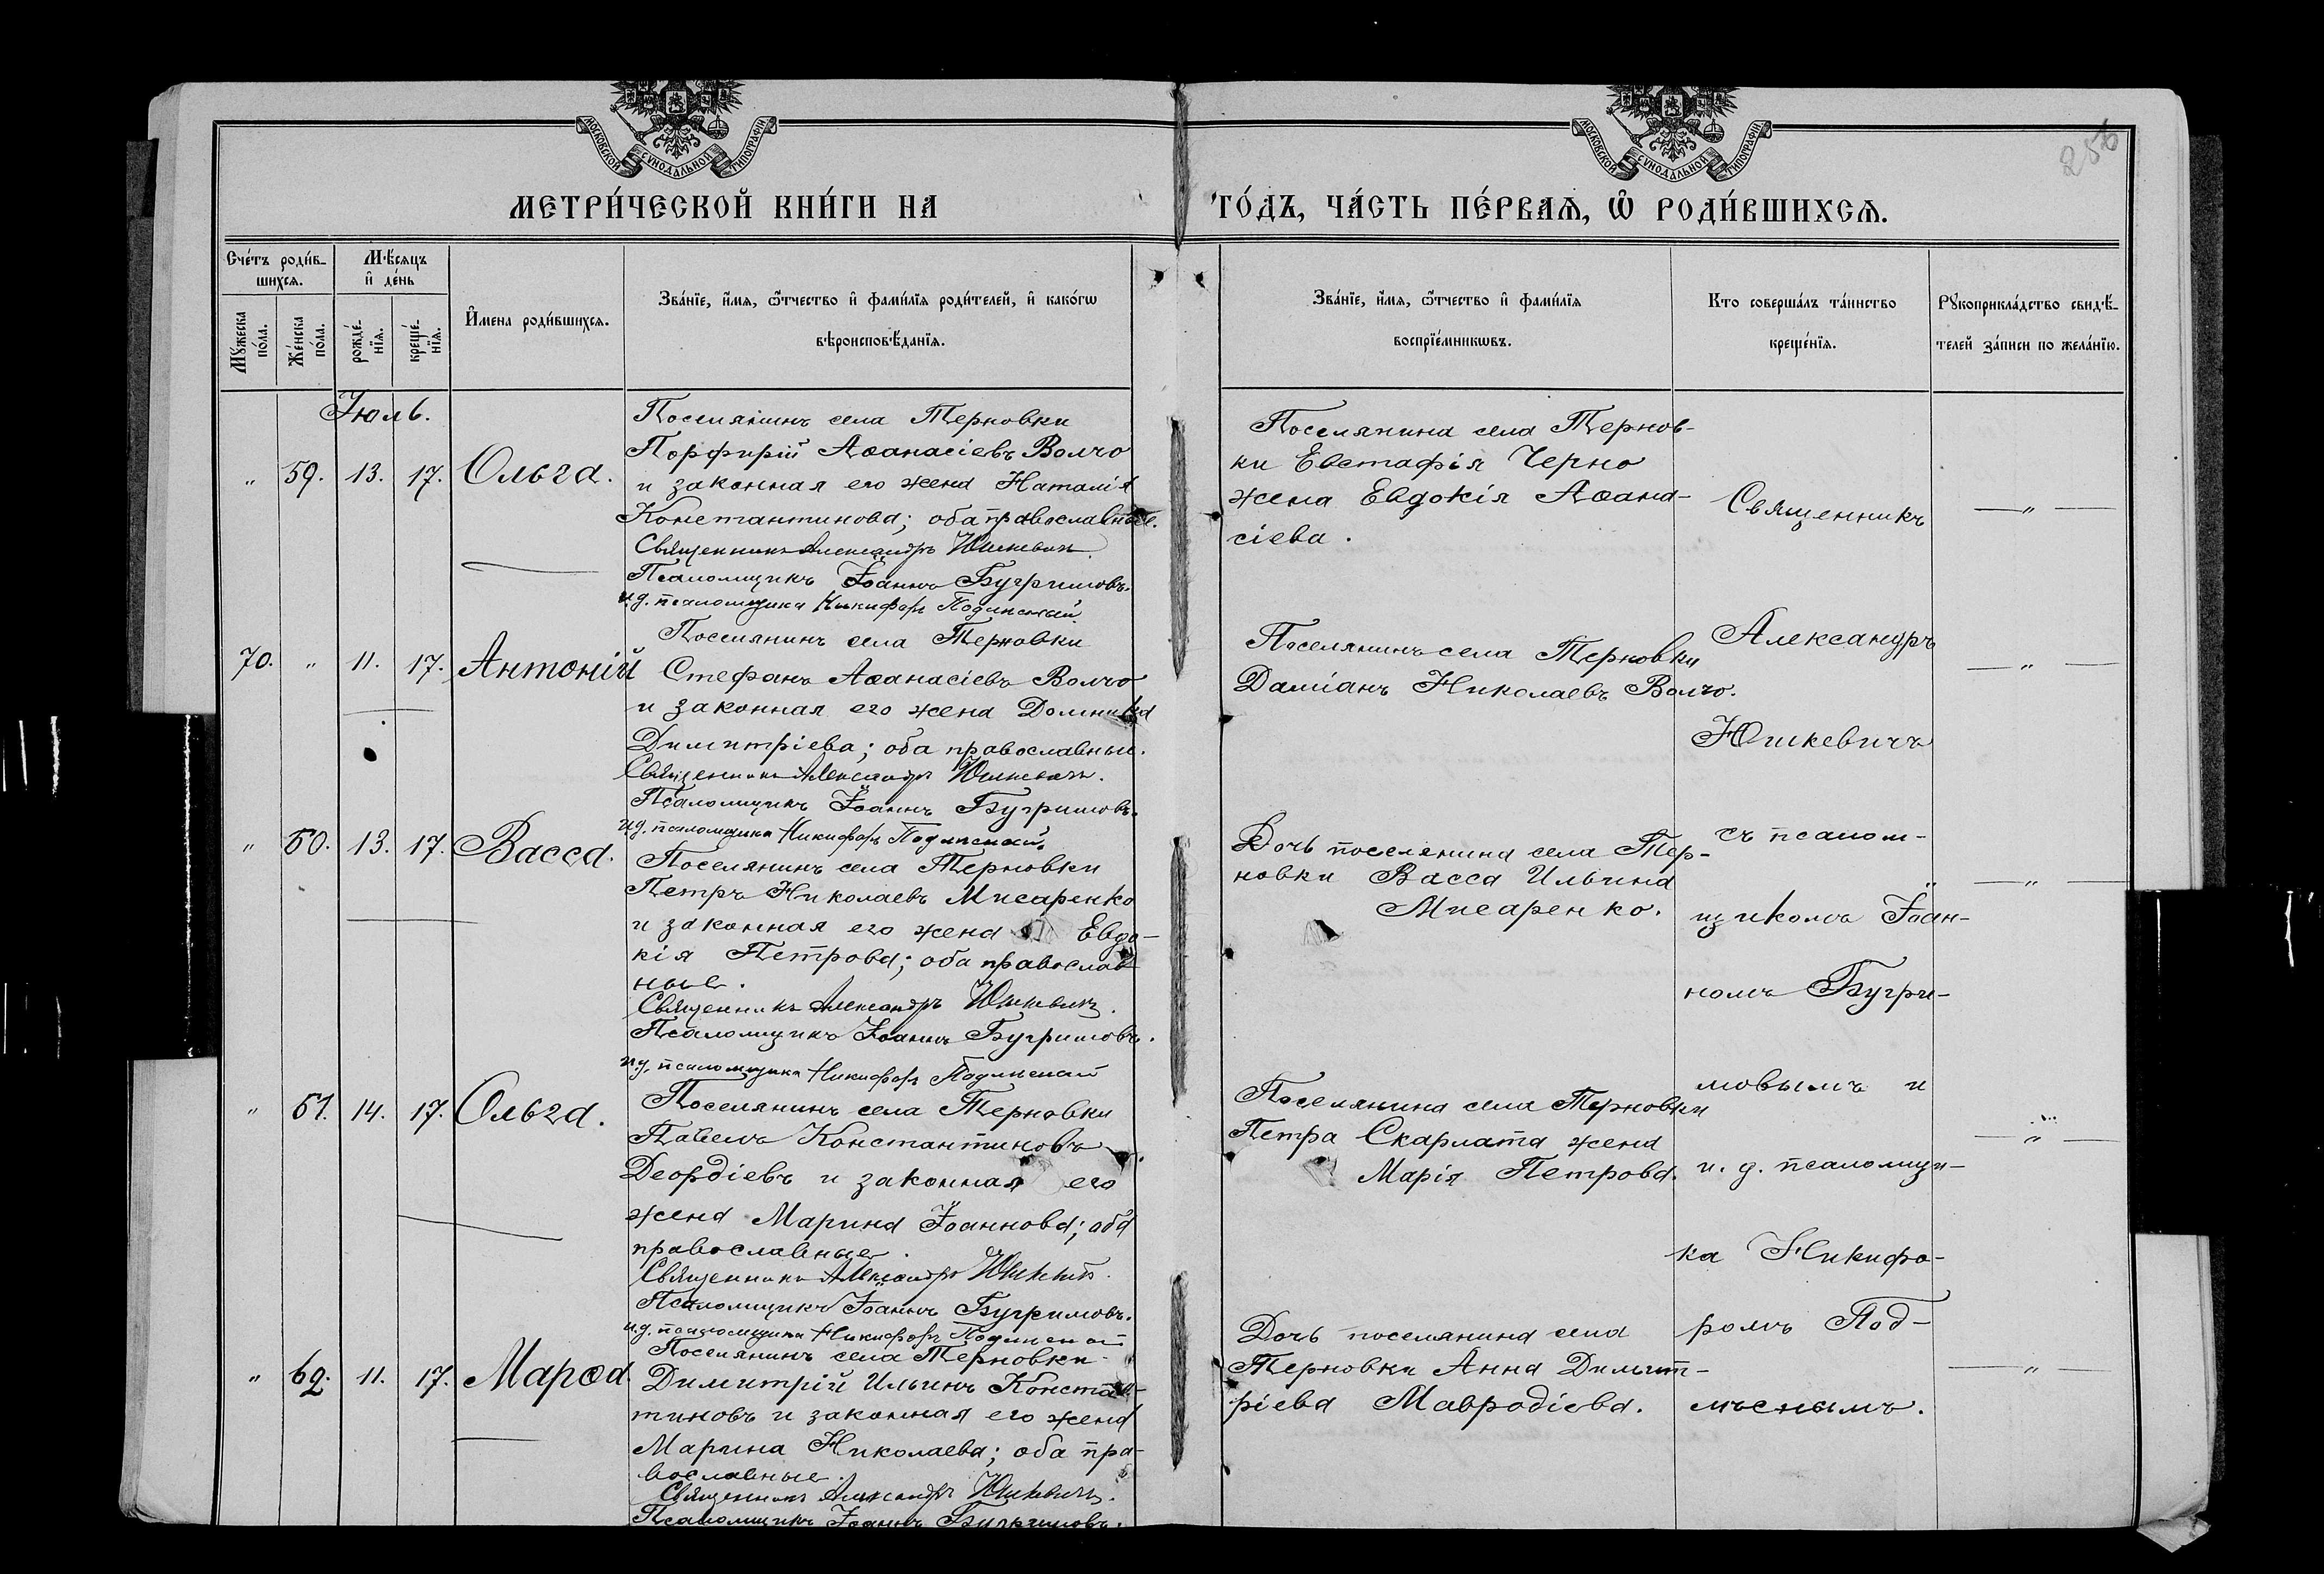 МОСКОВСКОЙ СУНОДАЛЬНОЙ ТИПОГРАФІИ
МОСКОВСКОЙ СУНОДАЛЬНОЙ ТИПОГРАФІИ
256
МЕТРИ́ЧЕСКОЙ КНИ́ГИ НА
ГО́ДЪ, ЧА́СТЬ ПЕ́РВАѦ, Ѡ РОДИ́ВШИХСѦ.
Сче́тъ роди́в-
шихсѧ.
Мꙋжеска по́ла.
Же́нска по́ла.
Мѣ́сяцъ
и де́нь
рожде́-
нїѧ.
креще́-
нїѧ.
И҆мена роди́вшихсѧ.
Зва́нїе, и҆́мѧ, ѻ҆́тчество и҆ фами́лїѧ роди́телей, и҆ како́гѡ
вѣроисповѣ́данїѧ.
Зва́нїе, и҆́мѧ, ѻ҆́тчество и҆ фами́лїѧ
воспрїе́мникѡвъ.
Кто соверша́лъ та́инство
креще́нїѧ.
Рꙋкоприкла́дство свидѣ́-
телей за́писи по жела́нїю.
Іюль.
" 59. 13. 17. Ольга.
Поселянинъ села Терновки
Порфирій Аѳанасіевъ Волчо
и законная его жена Наталія
Константинова; оба православные.
Священникъ Александръ Юшкевичъ.
Псаломщикъ Іоаннъ Бугримовъ.
и.д. псаломщика Никифоръ Подлѣсный
Поселянина села Тернов-
ки Евстафія Черно
жена Евдокія Аѳана-
сіева.
70. " 11. 17. Антоній
Поселянинъ села Терновки
Стефанъ Аѳанасіевъ Волчо
и законная его жена Домника
Димитріева; оба православные.
Священникъ Александръ Юшкевичъ.
Псаломщикъ Іоаннъ Бугримовъ.
и.д. псаломщика Никифоръ Подлѣсный
Поселянинъ села Терновки
Даміанъ Николаевъ Волчо.
" 60. 13. 17. Васса.
Поселянинъ села Терновки
Петръ Николаевъ Мисаренко
и законная его жена Евдо-
кія Петрова; оба православ
ные.
Священникъ Александръ Юшкевичъ.
Псаломщикъ Іоаннъ Бугримовъ.
и.д. псаломщика Никифоръ Подлѣсный
Дочь поселянина села Тер-
новки Васса Ильина
Мисаренко.
" 61. 14. 17. Ольга.
Поселянинъ села Терновки
Павелъ Константиновъ
Деордіевъ и законная его
жена Марина Іоаннова; оба
православные.
Священникъ Александръ Юшкевичъ.
Псаломщикъ Іоаннъ Бугримовъ.
и.д. псаломщика Никифоръ Подлѣсный
Поселянина села Терновки
Петра Скарлата жена
Марія Петрова.
" 62. 11. 17. Марѳа.
Поселянинъ села Терновки
Димитрій Ильинъ Констан-
тиновъ и законная его жена
Марина Николаева; оба пра-
вославные.
Священникъ Александръ Юшкевичъ.
Псаломщикъ Іоаннъ Бугримовъ.
Дочь поселянина села
Терновки Анна Димит-
ріева Мавродіева.
Священникъ
Александръ
Юшкевичъ
съ псалом-
щикомъ Іоан-
номъ Бугри-
мовымъ и
и. д. псаломщи-
ка Никифо-
ромъ Под-
лѣснымъ.